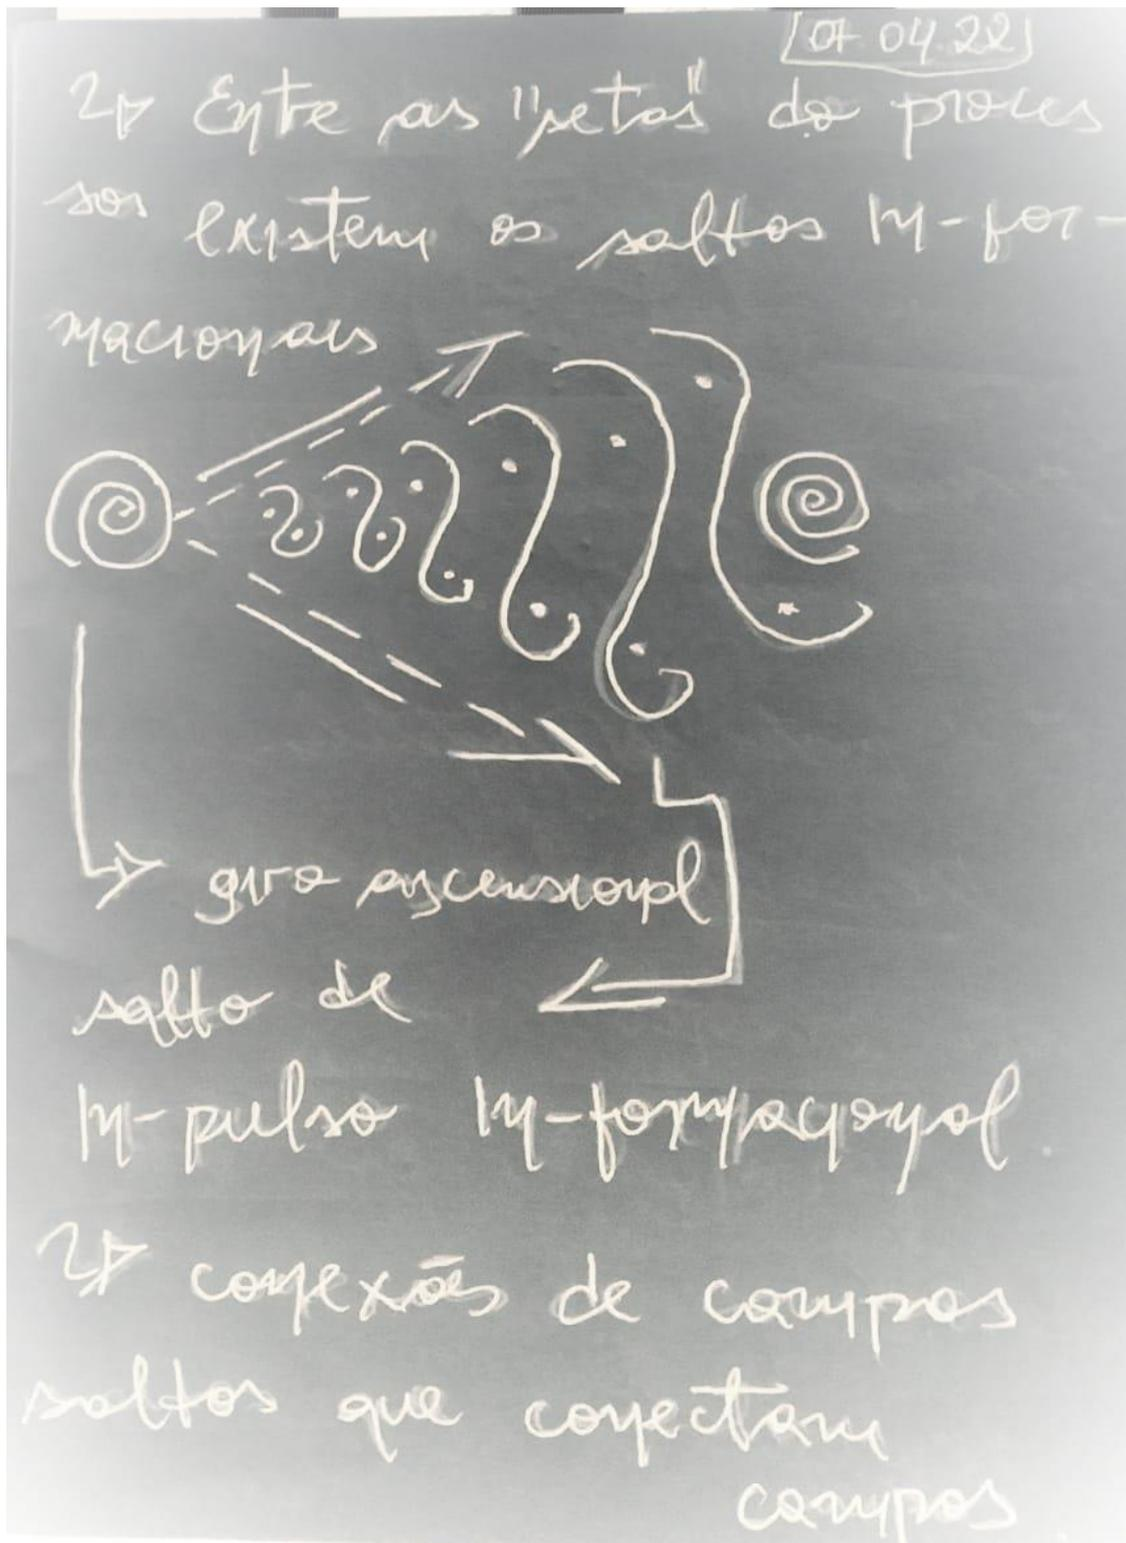 07.04.22
Entre as "setas" do proces
sos existem os saltos In-for-
macionais
giro ascensional
salto de
In-pulso In-formacional.
conexões de campos
saltos que conectam
campos